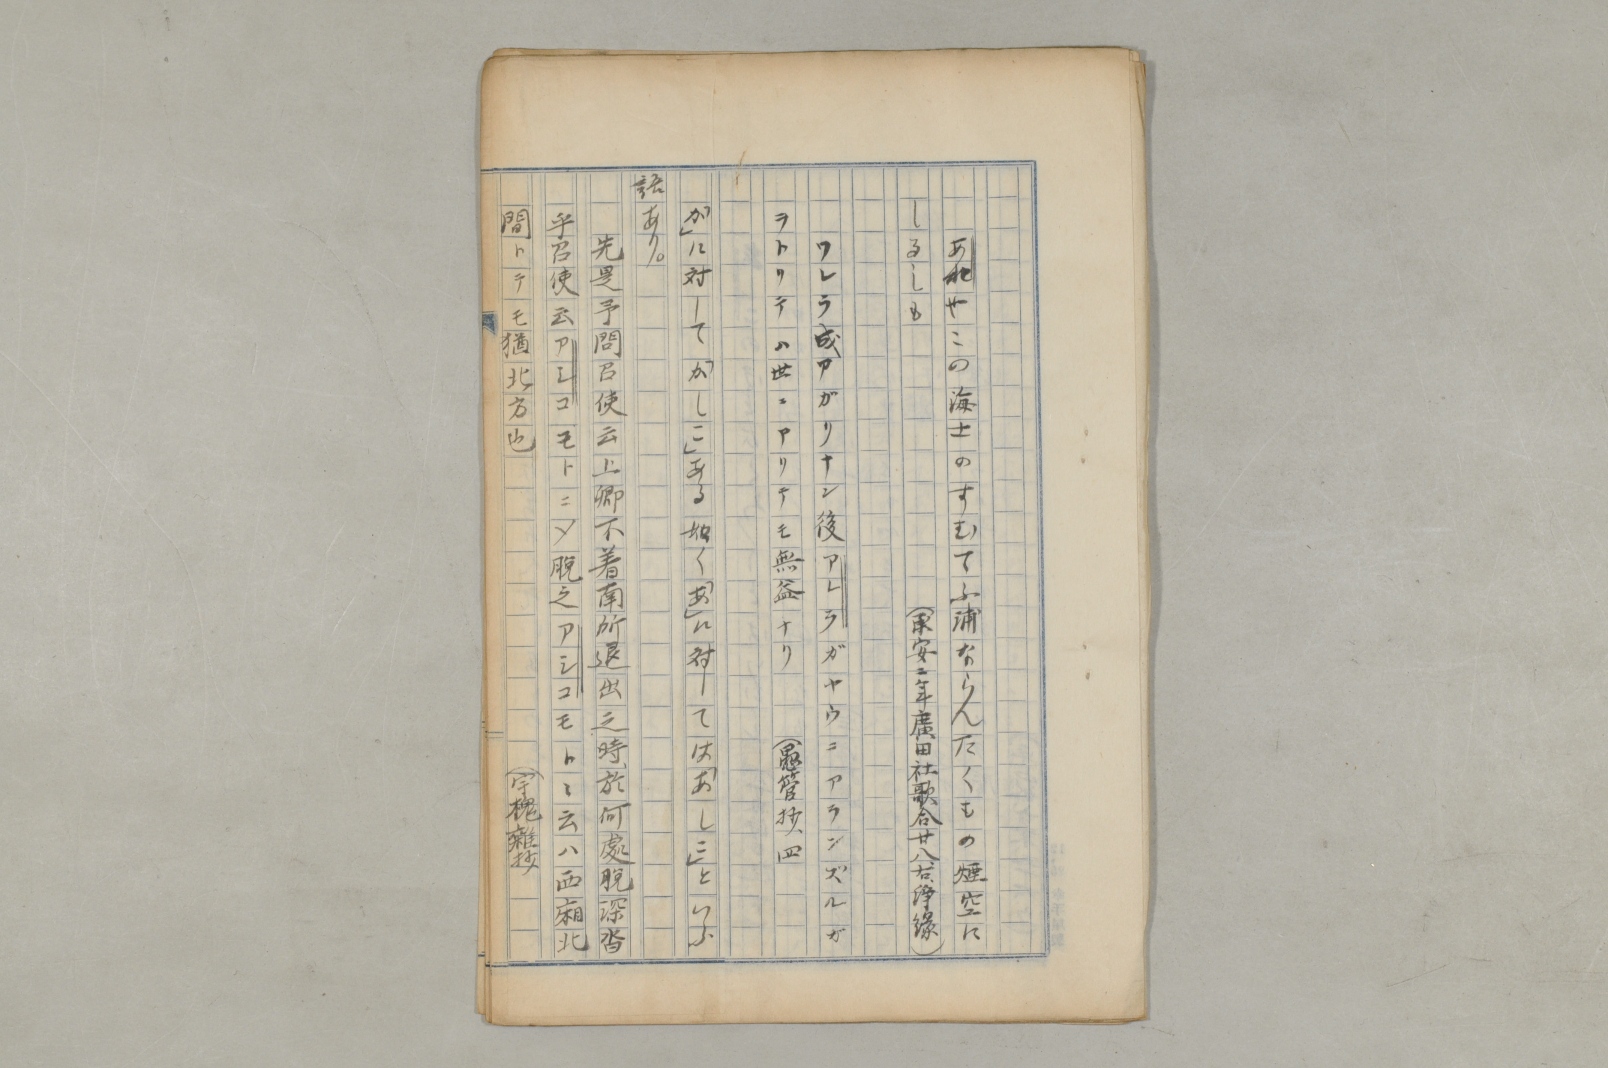 あれやこの海士のすむてふ浦ならんたくもの煙空に
しるしも（承安二年廣田社歌合廿八右、浄縁）
ワレラ成アガリナン後アレラガヤウニアランズルガ
ヲトリテハ世ニアリテモ無益ナリ（愚管抄、四
「か」に対して「かしこ」ある如く「あ」に対しては「あしこ」といふ
語あり。
先是予問召使云上卿不着南所退出之時、於何處脱深沓
乎召使云アシコモトニメ脱之アシコモトヽ云ハ西廂北
間トテモ猶北方也（宇槐雜抄